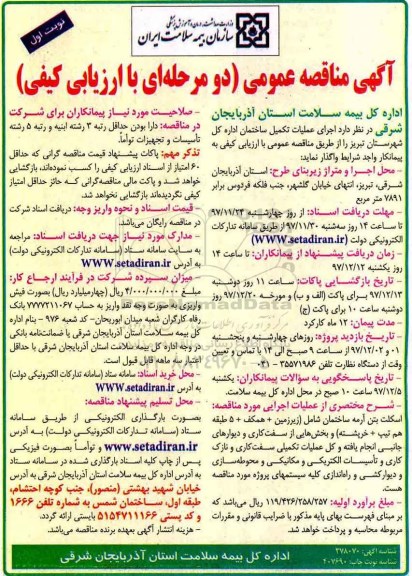 وزارت بهداشت، درمان و آموزش پزشکی
سازمان بیمه سلامت ایران
نوبت اول
آگهی مناقصه عمومی (دو مرحله‌ای با ارزیابی کیفی)
اداره کل بیمه سلامت استان آذربایجان
شرقی در نظر دارد اجرای عملیات تکمیل ساختمان اداره کل
شهرستان تبریز را از طریق مناقصه عمومی با ارزیابی کیفی به
پیمانکار واجد شرایط واگذار نماید:
- محل اجرا و متراژ زیربنای طرح: استان آذربایجان
شرقی، تبریز، انتهای خیابان گلشهر، جنب فلکه فردوس برابر
۷۸۹۱ متر مربع
- مهلت دریافت اسناد: از روز چهارشنبه ۹۷/۱۱/۲۴
تا ساعت ۱۴ روز سه‌شنبه ۹۷/۱۱/۳۰ از طریق سامانه تدارکات
الکترونیکی دولت (WWW.setadiran.ir)
- زمان دریافت پیشنهاد از پیمانکاران: تا ساعت ۱۴
روز یکشنبه ۹۷/۱۲/۱۲
- تاریخ بازگشایی پاکات: ساعت ۱۱ روز دوشنبه
۹۷/۱۲/۱۳ برای پاکت (الف و ب) و مورخه ۹۷/۱۲/۲۰ روز
دوشنبه ساعت ۱۰ برای پاکت (ج)
- مدت پیمان: ۱۲ ماه کارکرد
- تاریخ بازدید پروژه: روزهای چهارشنبه و پنجشنبه
۰۱ و ۹۷/۱۲/۰۲ از ساعت ۹ صبح الی ۱۴ با تماس و تعیین
وقت از دستگاه نظارت تلفن ۳۵۵۷۱۹۸۶ - ۰۴۱
- تاریخ پاسخگویی به سؤالات پیمانکاران: یکشنبه
۹۷/۱۲/۵ ساعت ۱۰ صبح در محل اداره کل بیمه سلامت.
- شرح مختصری از عملیات اجرایی مورد مناقصه:
اسکلت بتن آرمه ساختمان شامل (زیرزمین + همکف + ۵ طبقه
هم تیپ + خرپشته) و بخش‌هایی از سفت‌کاری و دیوارهای
جانبی انجام یافته و کل عملیات تکمیلی سفت‌کاری و نازک
کاری و تأسیسات الکتریکی و مکانیکی و محوطه‌سازی
و دیوارکشی و راه‌اندازی کلیه سیستمهای پروژه مورد مناقصه
هست.
- مبلغ برآورد اولیه: ۱۱۹/۴۲۶/۲۵۸/۲۵۷ ریال می‌باشد که
بر مبنای فهرست بهای پایه مذکور با ضرایب قانونی و مقررات
مربوطه محاسبه و پرداخت خواهد شد.
- صلاحیت مورد نیاز پیمانکاران برای شرکت
در مناقصه: دارا بودن حداقل رتبه ۳ رشته ابنیه و رتبه ۵ رشته
تأسیسات و تجهیزات توأماً.
تذکر مهم: پاکات پیشنهاد قیمت مناقصه گرانی که حداقل
۶۰ امتیاز از اسناد ارزیابی کیفی را کسب نموده‌اند، بازگشایی
خواهد شد و پاکت مالی مناقصه‌گرانی که حائز حداقل امتیاز
کیفی نگردیده‌اند بازگشایی نخواهد شد.
- قیمت اسناد و نحوه واریز وجه: دریافت اسناد شرکت
در مناقصه رایگان می‌باشد.
- مدارک مورد نیاز جهت دریافت اسناد: مراجعه
به سایت سامانه ستاد (سامانه تدارکات الکترونیکی دولت)
به آدرس WWW.setadiran.ir
- میزان سپرده شرکت در فرآیند ارجاع کار:
مبلغ ۴/۰۰۰/۰۰۰/۰۰۰ ریال (چهارمیلیارد ریال) بصورت فیش
واریزی به صورت وجه نقد واریز به حساب ۷۷۷۷۷۱۱۰۶۷ بانک
رفاه کارگران شعبه میدان ابوریحان- کد شعبه ۹۷۶ – بنام اداره
کل بیمه سلامت استان آذربایجان شرقی یا ضمانت‌نامه بانکی
در وجه اداره کل بیمه سلامت استان آذربایجان شرقی با حداقل
اعتبار سه ماهه قابل قبول است.
- محل خرید اسناد: سامانه ستاد (سامانه تدارکات الکترونیکی دولت)
به آدرس WWW.setadiran.ir
- محل تسلیم پیشنهاد مناقصه:
بصورت بارگذاری الکترونیکی از طریق سامانه
ستاد (سامانه تدارکات الکترونیکی دولت) به آدرس
www.setadiran.ir و توأماً بصورت فیزیکی
پس از چاپ کلیه اسناد بارگذاری شده در سامانه ستاد
به آدرس اداره کل بیمه سلامت استان آذربایجان شرقی به آدرس
خیابان شهید بهشتی (منصور)، جنب کوچه احتشام،
طبقه اول، ساختمان شمس به شماره تلفن ۱۶۶۶
و کد پستی ۵۱۵۴۷۱۱۱۶۶ بایستی ارائه گردد.
- هزینه انتشار آگهی بعهده برنده مناقصه می‌باشد.
اداره کل بیمه سلامت استان آذربایجان شرقی
شناسه آگهی: ۳۷۸۰۷۰
شناسه نوبت چاپ: ۴۰۷۶۹۰